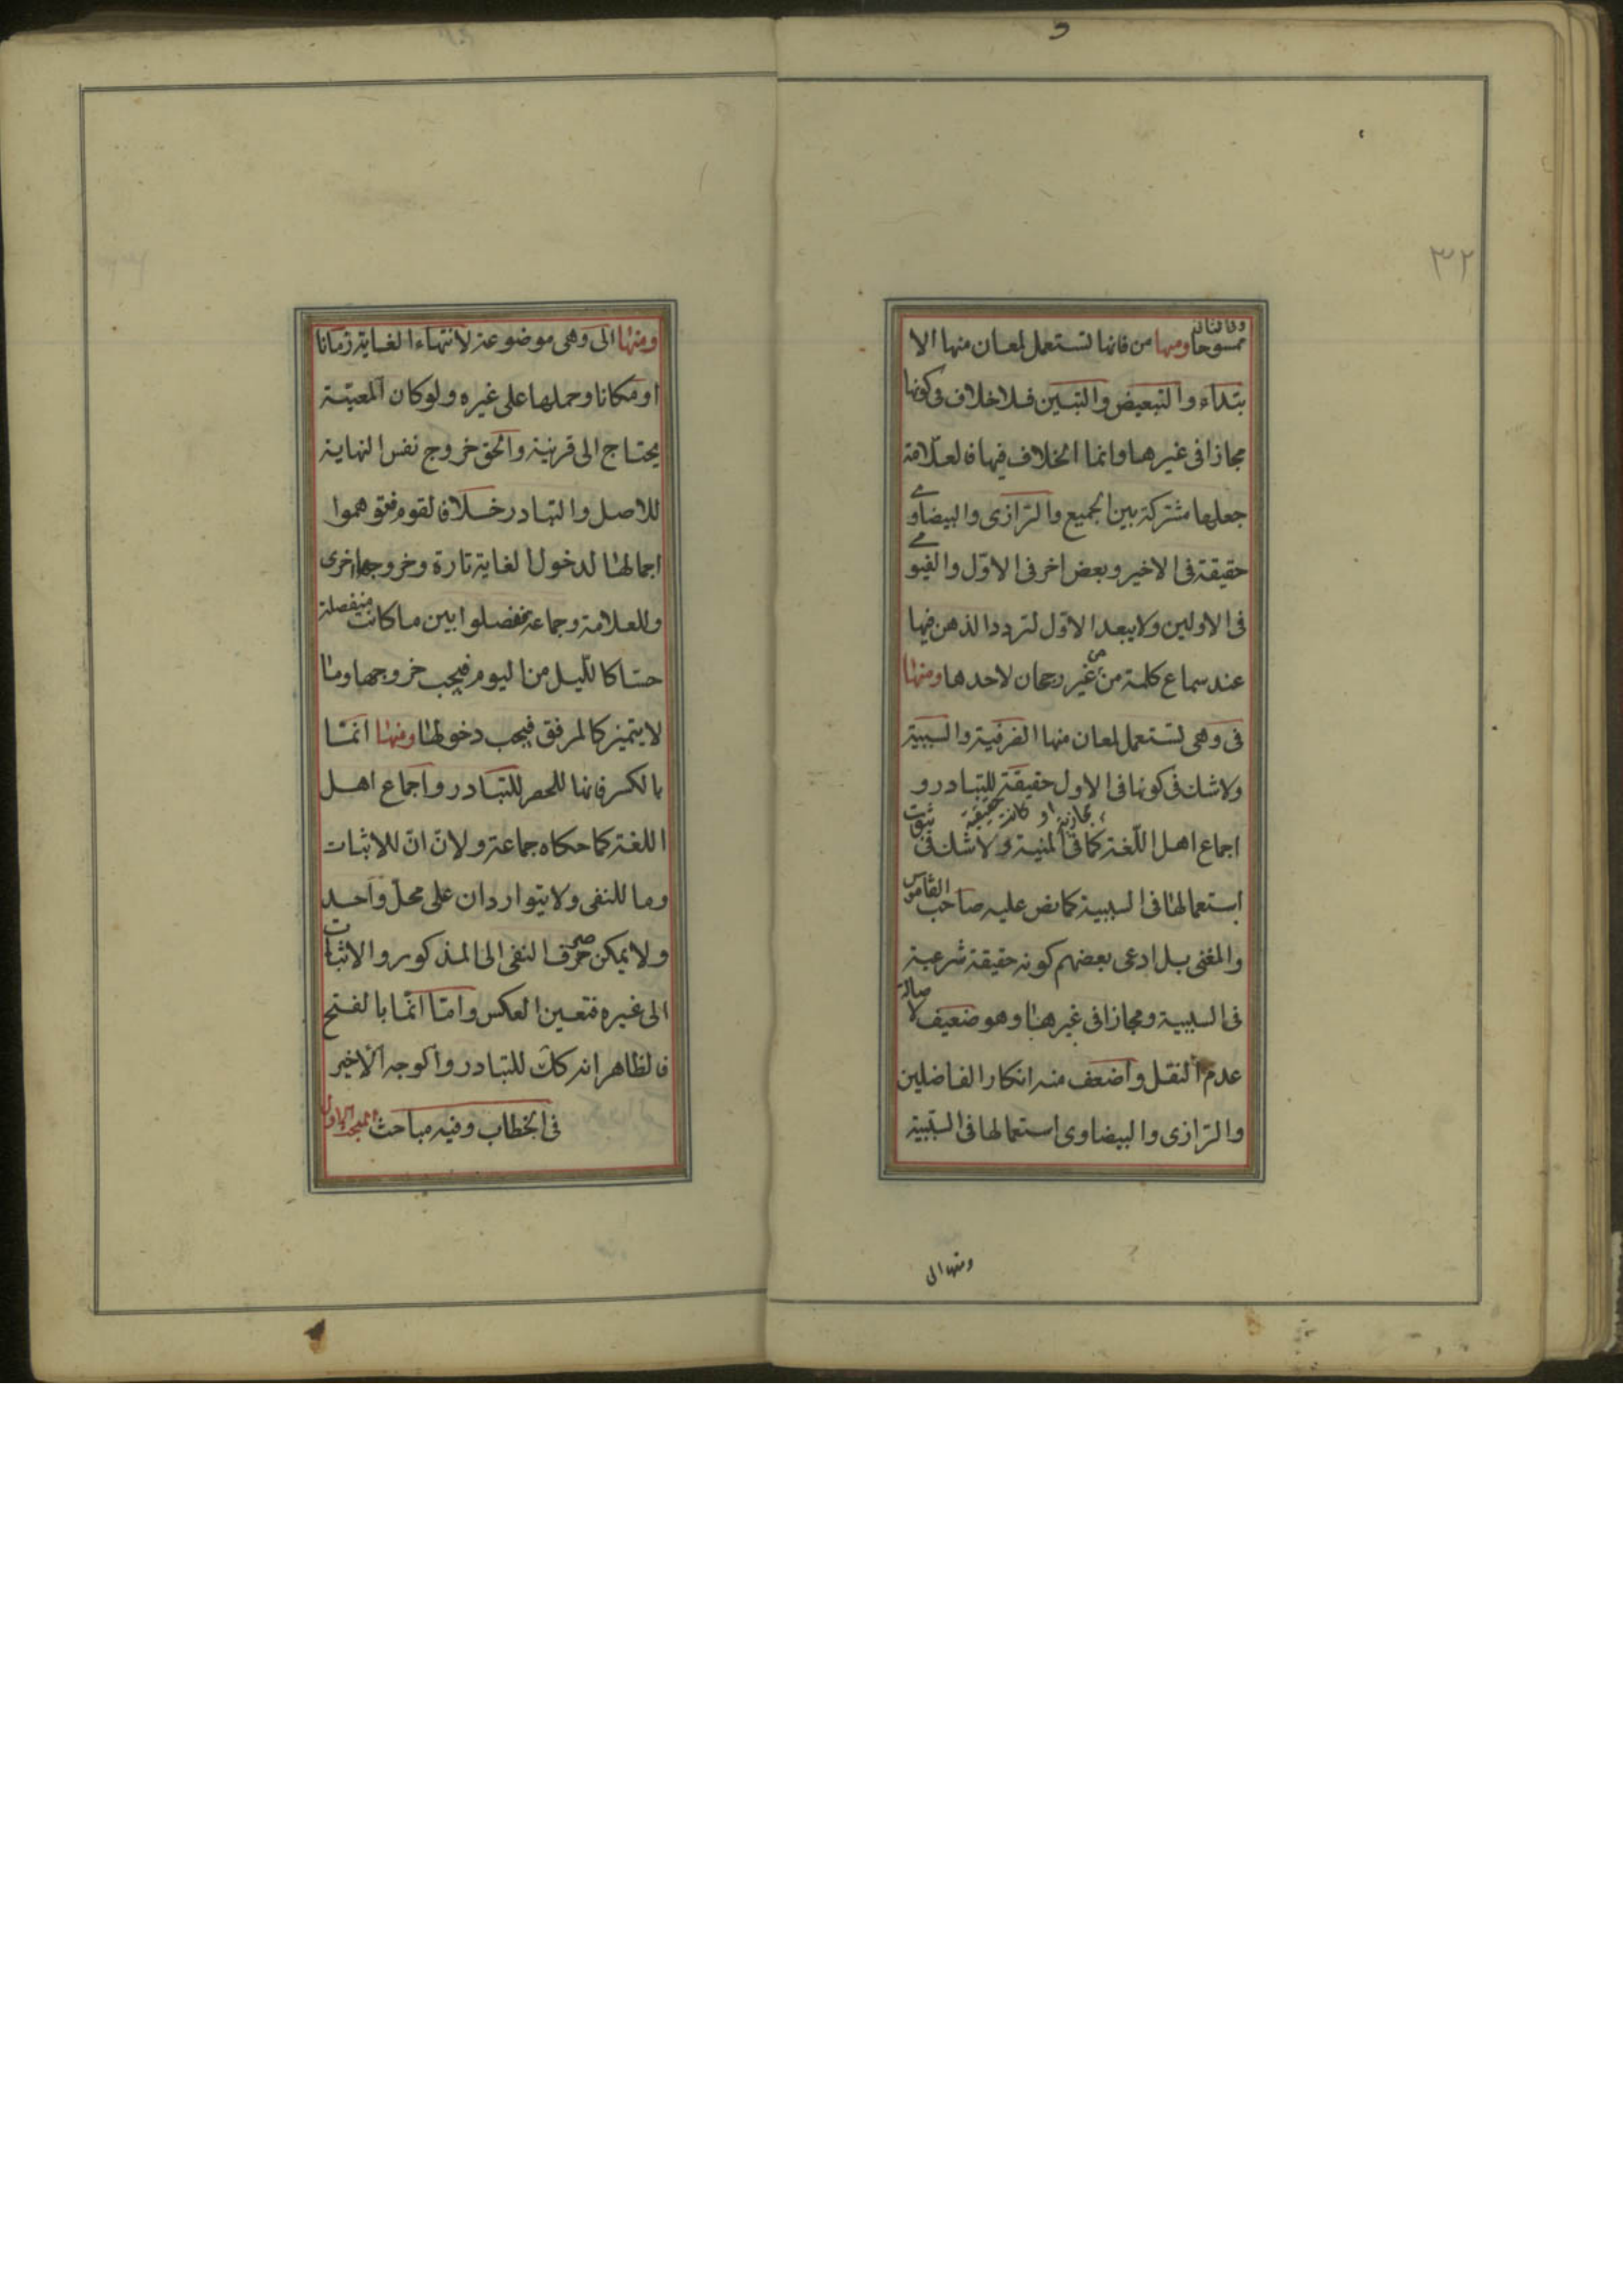 ٣٢
ممسوحا ومنها من فانها تستعمل لمعان منها الا
بتداء والتبعيض والتبيين فلا خلاف فى كونها
مجازا فى غيرها وانما الخلاف فيها فالعلامة
جعلها مشتركة بين الجميع والرازى والبيضاوے
حقيقة فى الاخير وبعض اخر فى الاوّل والفيومے
فى الاولين ولا يبعد الاوّل لتردد الذهن فيها
عند سماع كلمة من من غير رجحان لاحدها ومنها
فى وهى تستعمل لمعان منها الظرفية والسببية
ولا شك فى كونها فى الاول حقيقة للتبادر و
مجازية او كانت حقيقة ثبوت
اجماع اهل اللّغة كما فى المنية ولا شك فى
استعمالها فى السببية كما نص عليه صاحب القاموس
والمغنى بل ادعى بعضهم كونه حقيقة شرعية
فى السببية ومجازا فى غيرها وهو ضعيف لاصالة
عدم النقل واضعف منه انكار الفاضلين
والرّازى والبيضاوى استعمالها فى السّببية
ومنها الى
ومنها الى وهى موضوعة لانتهاء الغاية زمانا
او مكانا وحملها على غيره ولو كان المعيّة
يحتاج الى قرينة والحق خروج نفس النهاية
للاصل والتبادر خلافا لقوم فتوهموا
اجمالها لدخول الغاية تارة وخروجها اخرى
وللعلامة وجماعة ففصلوا بين ما كانت منفصلة
حسّا كاللّيل من اليوم فيجب خروجها وما
لا يتميز كالمرفق فيجب دخولها ومنها انمّا
بالكسر فانها للحصر للتبادر واجماع اهل
اللغة كما حكاه جماعة ولانّ انّ للاثبات
وما للنفى ولا يتواردان على محلّ واحد
ولا يمكن صرف النفى الى المذكور والاثبات
الى غيره فتعين العكس وامّا انّما بالفتح
فالظاهر انه كك للتبادر والوجه الاخير
فى الخطاب وفيه مباحث المبحث الاول